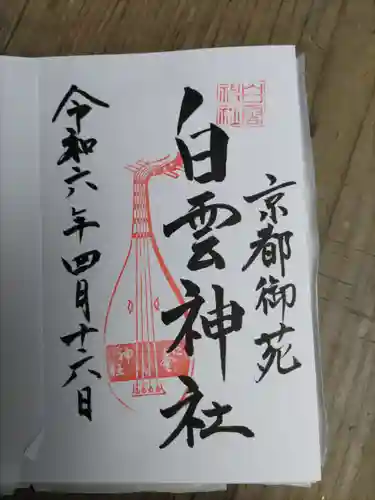 京都御苑
白雲神社
令和六年四月十六日
白雲
神社